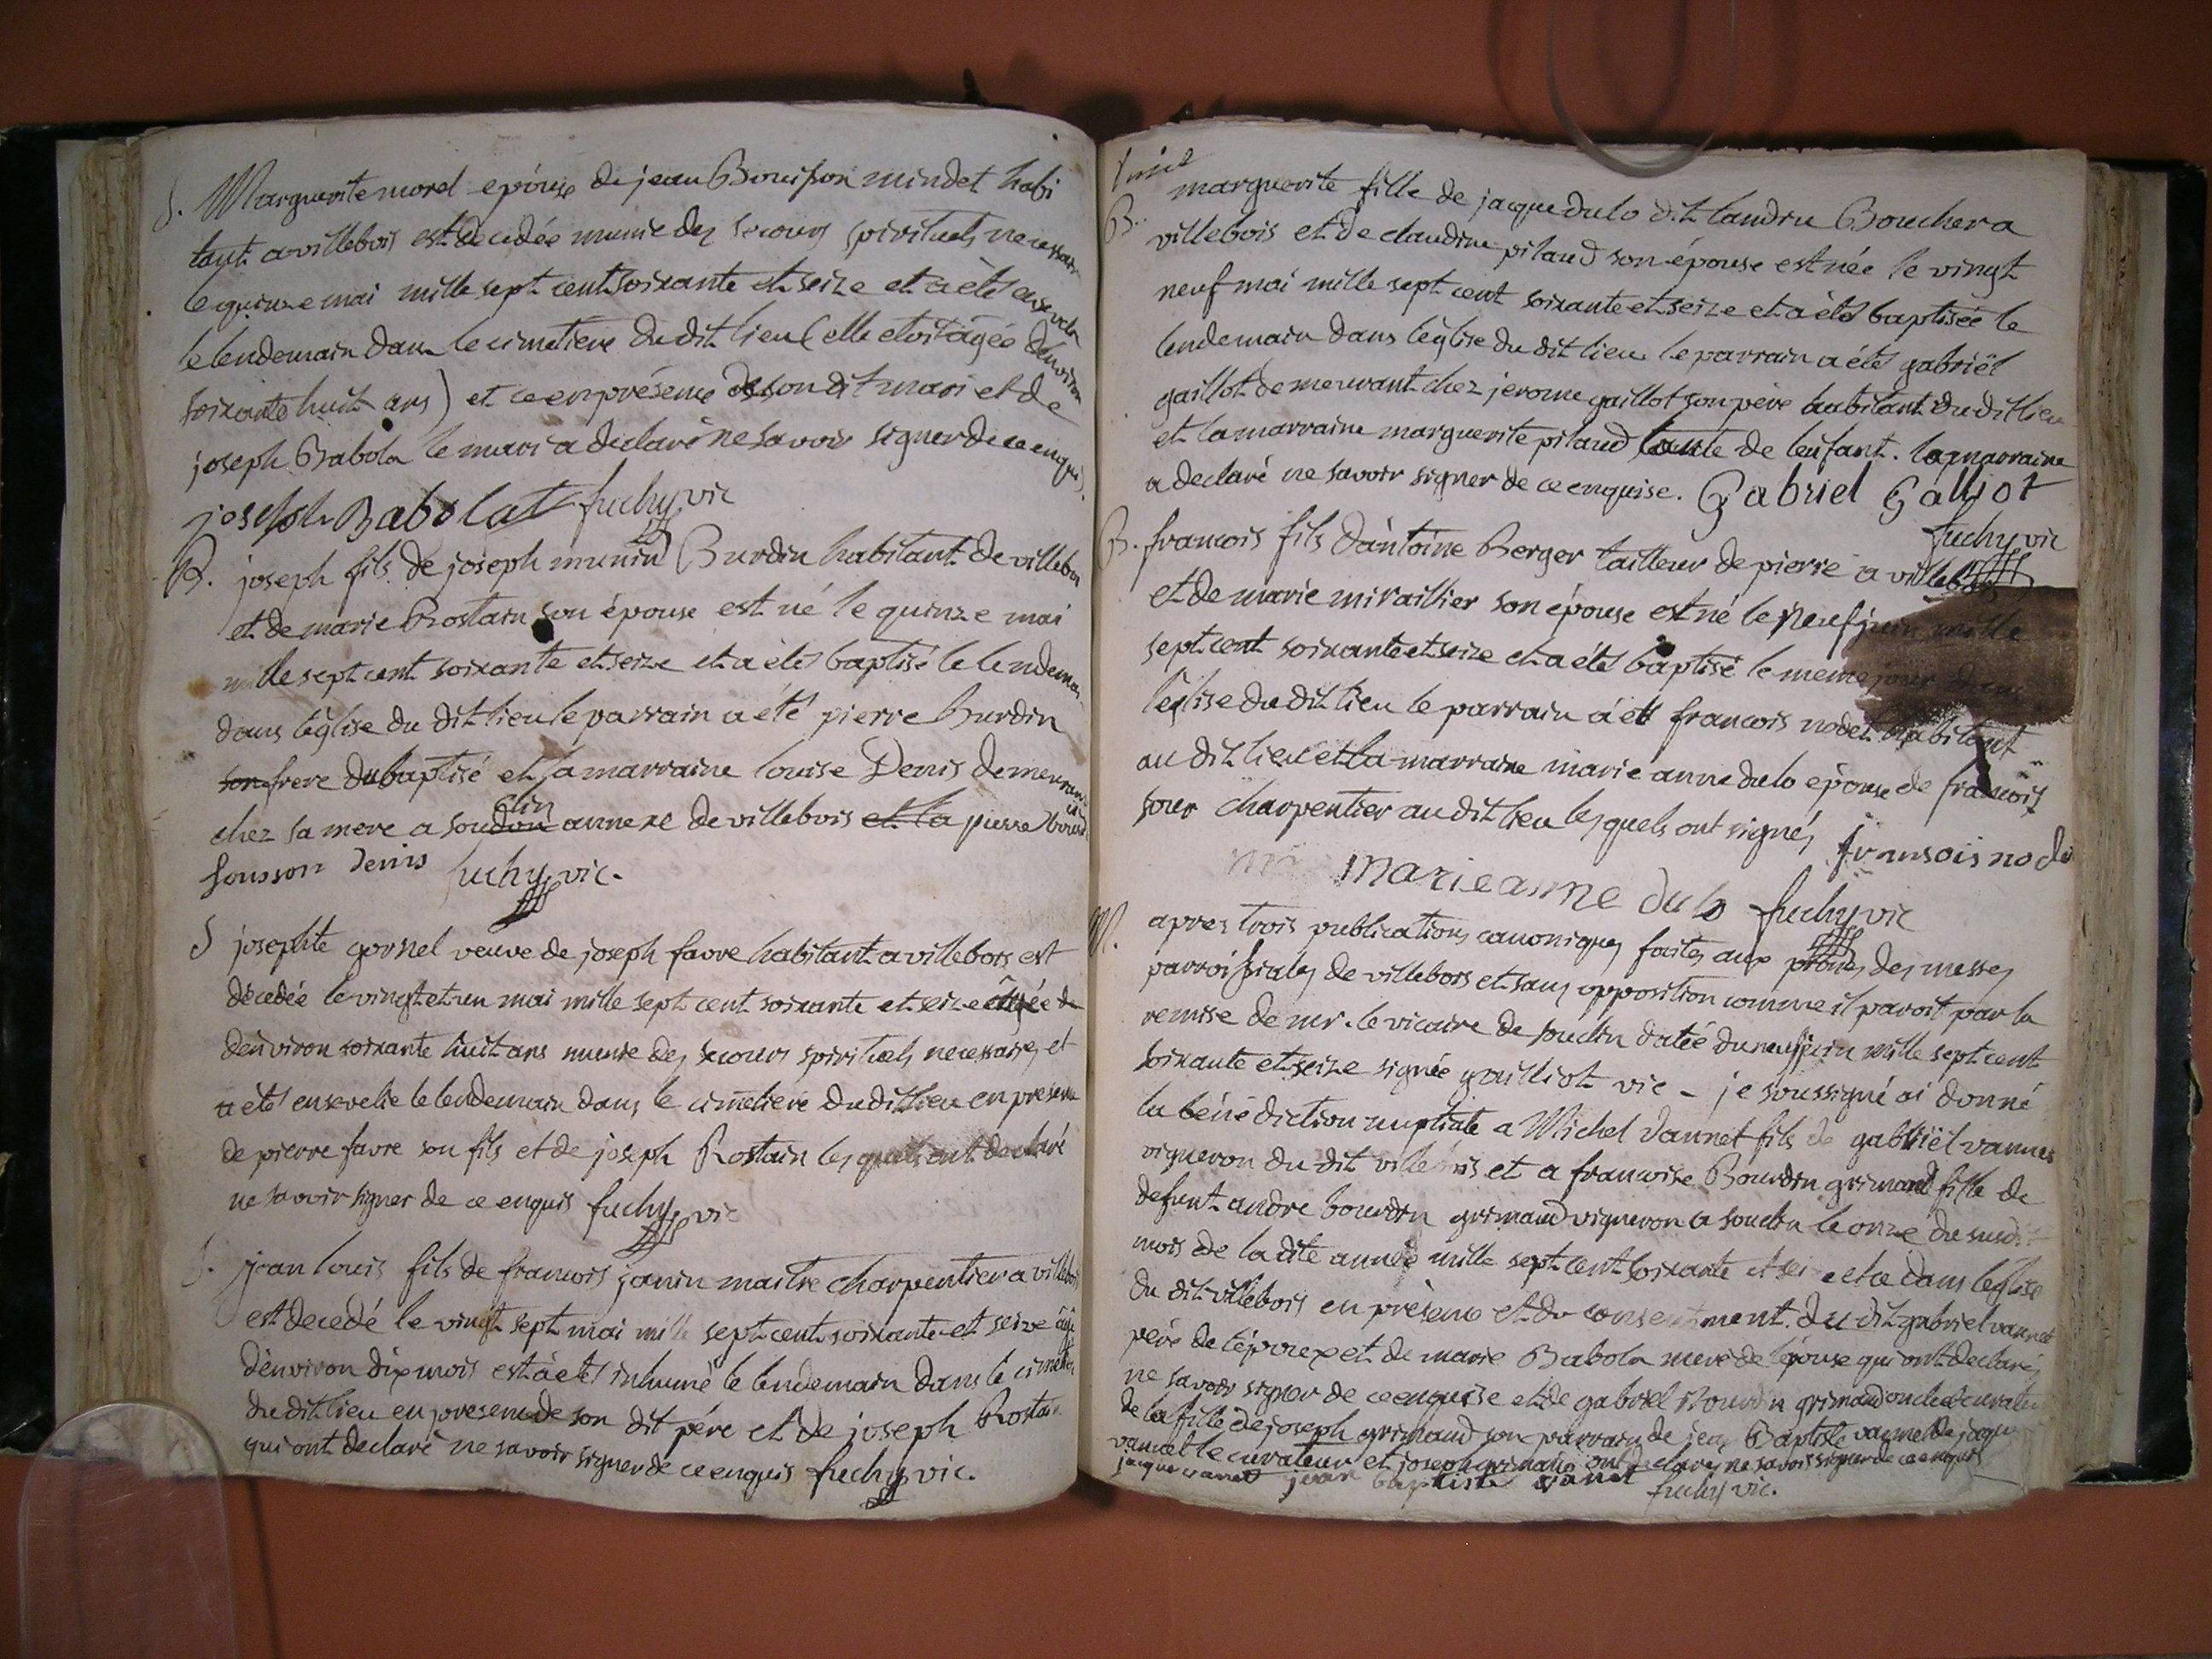 S. Marguerite morel epouse de jean Bouisson mindet habi
tant a villebois est decedée munie des secours spirituels necessair
le quinze mai mille sept cent soixante et seize et a étés ensevelie
le lendemain dans le cimetiere du dit lieu (elle etoit âgée d'environ
soixante huit ans) et ce en présence de son dit mari et de
joseph Babola le mari a declaré ne savoir signer de ce enquis.
joseph Babolat fuchy vic
B. joseph fils de joseph munin Burdin habitant de villeboi
et de marie Rostain son épouse est né le quinze mai
mille sept cent soixante et seize et a étés baptisé le lendemai
dans l'église du dit lieu le parrain a été pierre burdin
son frere du baptisé et la marraine louise Denis demeurant
chez sa mere a soudon lin annexe de villebois et la pierre bourd
fonsson denis fuchy vic.
S josephte gornel veuve de joseph favre habitant a villebois est
décedée le vingt et un mai mille sept cent soixante et seize âgée de
d'environ soixante huit ans munie des secours spirituels necessaires et
a étés ensevelie le lendemain dans le cimetiere du dit lieu en presence
de pierre favre son fils et de joseph Rostain les quels ont declaré
ne savoir signer de ce enquis fuchy vic
S. jean louis fils de francois janin maitre charpentier a villeboi
est decedé le vingt sept mai mille sept cent soixante et seize âgé
d'environ dix mois est a étés inhumé le lendemain dans le cimetier
du dit lieu en presence de son dit pére et de joseph Rostain
qui ont declaré ne savoir signer de ce enquis fuchy vic.
B. marguerite fille de jacque dulo dit landru Boucher a
villebois et de claudine pilaud son épouse est née le vingt
neuf mai mille sept cent soixante et seize et a étés baptisée le
lendemain dans l'église du dit lieu le parrain a étés gabriël
gaillot demeurant chez jerome gaillot son pére habitant du dit lieu
et la marraine marguerite pilaud tante de l'enfant. la marraine
a declaré ne savoir signer de ce enquise. Gabriel Galliot
fuchy vic
B. francois fils d'antoine Berger tailleur de pierre a villebois
et de marie miraillier son épouse est né le neuf juin mille
sept cent soixante et seize et a étés baptisé le meme jour dans
l'église du dit lieu le parrain a été francois nodet habitant
au dit lieu et la marraine marie anne dulo épouse de francois
sour charpentier au dit lieu les quels ont signés fransois node
marie anne dulo fuchy vic
M. apres trois publications canoniques faites aux prônes des messes
parroissiales de villebois et sans opposition comme il paroit par la
remise de mr. le vicaire de soudin datée du neuf juin mille sept cent
soixante et seize signée gailliot vic - je soussigné ai donné
la bénédiction nuptiale a Michel vannet fils de gabriël vannet
vigneron du dit villebois et a francoise Bourdin grimaud fille de
defunt andre bourdin grimaud vigneron a soudin le onze du susdit
mois de la dite année mille sept cent soixante et seize et ce dans l'église
du dit villebois en présence et du consentement du dit gabriel vannet
pére de l'époux et de marie Babola mere de l'épouse qui ont declarés
ne savoir signer de ce enquise et de gabriel Bourdin grimaud oncle et curateur
de la fille de joseph grimaud son parrain de jean Baptiste vannet de jacque
vannet le curateur et joseph grimaud ont declarés ne savoir signer de ce enquis
jacque vannet jean baptiste vanet fuchy vic.